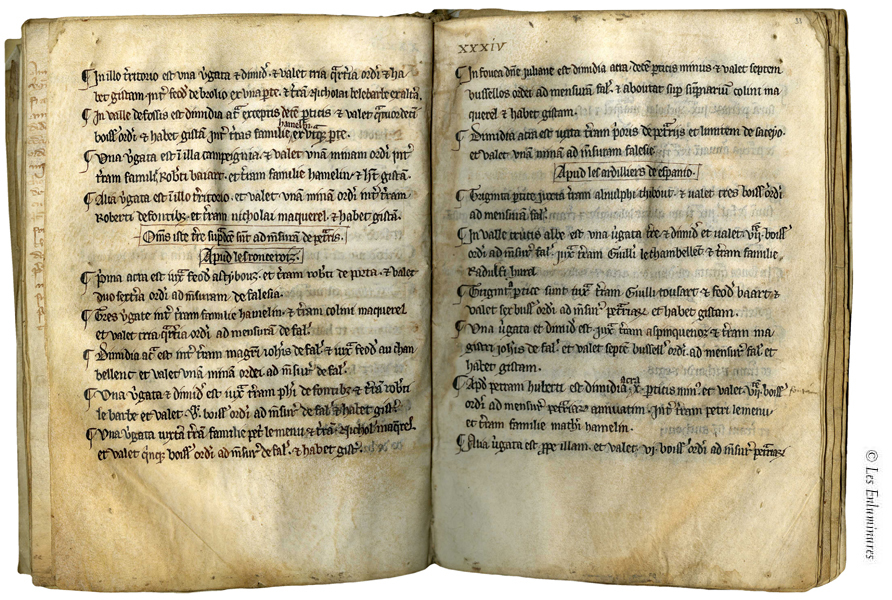 ¶ In illo t'ritorio est vna v'gata & dimid'. & valet tria q'rt'ia ordi & ha
bet gistam. int' feod' de ex vna p'te. & t'ra' Nicholai
¶ In valle de fossis est dimidia ac' exceptis dece' p'ticis & valet
boiss' ordi & habet gista' int' t'ras familie hamelin ex p'te.
¶ Vna v'gata est i' illa campeignia. & valet vna' minam ordi int'
t'ram famil' Rob'ti baiart. et t'ram familie hamelin. & h't gista'.
¶ Alia v'gata est i' illo t'ritorio. et valet vna' mina' ordi int' t'ram
Roberti de fontib'z. et t'ram nicholai maquerel. & habet gista'.
Om's iste t're sup'd'ce sunt ad m'sura' de pet'riis.
Apud les ronceroiz.
¶ P'ma acra est iux' feod' et t'ram rob'ti de porta. & valet
duo sext'ia ordi ad m'suram de falesia.
¶ Tres v'gate int' t'ram familie hamelin. & t'ram colini maquerel
et valet tria q'rt'ia ordi ad mensura' de fal'.
¶ Dimidia ac' est int' t'ram mag'ri ioh'is de fal' & iux' feod' au cham
bellenc et valet vna' mina' ordei ad m'sur' de fal'.
¶ Vna v'gata & dimid' est iux' t'ram ph'i de fontib'z & t'ra' rob'ti
le barbe et valet .v. boiss' ordi ad m'sur' de fal' & habet gist'.
¶ Vna v'gata iuxta t'ra' familie pet' le menu & t'ra' Nichol' maq'rel.
et valet q'nq' boiss' ordi ad m'sur' de fal'. & habet gist'.
XXXIV
¶ In fouea d'ne iuliane est dimidia acra. dece' p'ticis minus & valet septem
bussellos ordei ad mensura' fal'. & aboutat sup' colini ma
querel & habet gistam.
¶ Dimidia acra est iuxta t'ram p'oris de pet'riis & limitem de
et valet vna' mina' ad m'suram falesie
Apud les ardilliers de espanio.
¶ Triginta p'tice iuxta t'ram arnulphi thibout. & valet tres boiss' ordi
ad mensura' fal'.
¶ In valle crucis albe est vna v'gata t're & dimid' et ualet .vii. boiss'
ordi ad m'sur' fal' iux' t'ram Guill'i le chambellec & t'ram familie
Radulfi hurel
¶ Triginta p'tice sunt iux' t'ram Guill'i tousart & feod' baart &
valet sex buss' ordi ad m'sur' pet'riar' et habet gistam.
¶ Vna v'gata et dimid' est iux' t'ram & t'ram ma
gistri ioh'is de fal' et valet septe' bussell' ordi. ad mensur' fal' et
habet gistam.
¶ Ap'd petram huberti est dimidia acra .x. p'ticis min' et valet .vii. boiss'
ordi ad mensur' pet'riar' annuatim. int' t'ram petri le menu
et t'ram familie math'i hamelin.
¶ Alia v'gata est p'pe illam. et valet .vi. boiss' ordi ad m'sur' pet'riar'
© Les Enluminures